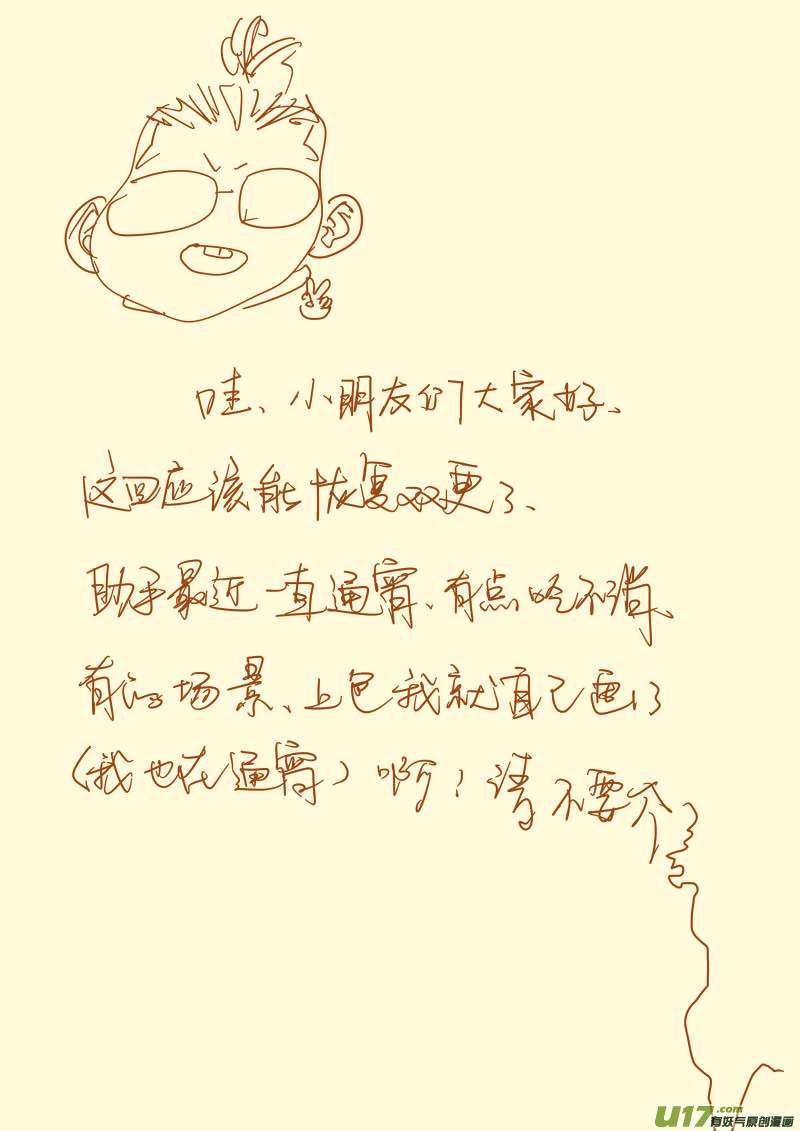 哇、小朋友们大家好、
这回应该能恢复双更了、
助手最近一直通宵、有点吃不消、
有的场景、上色我就自己画了
(我也在通宵) 啊! 请不要介
U17.com
有妖气原创漫画